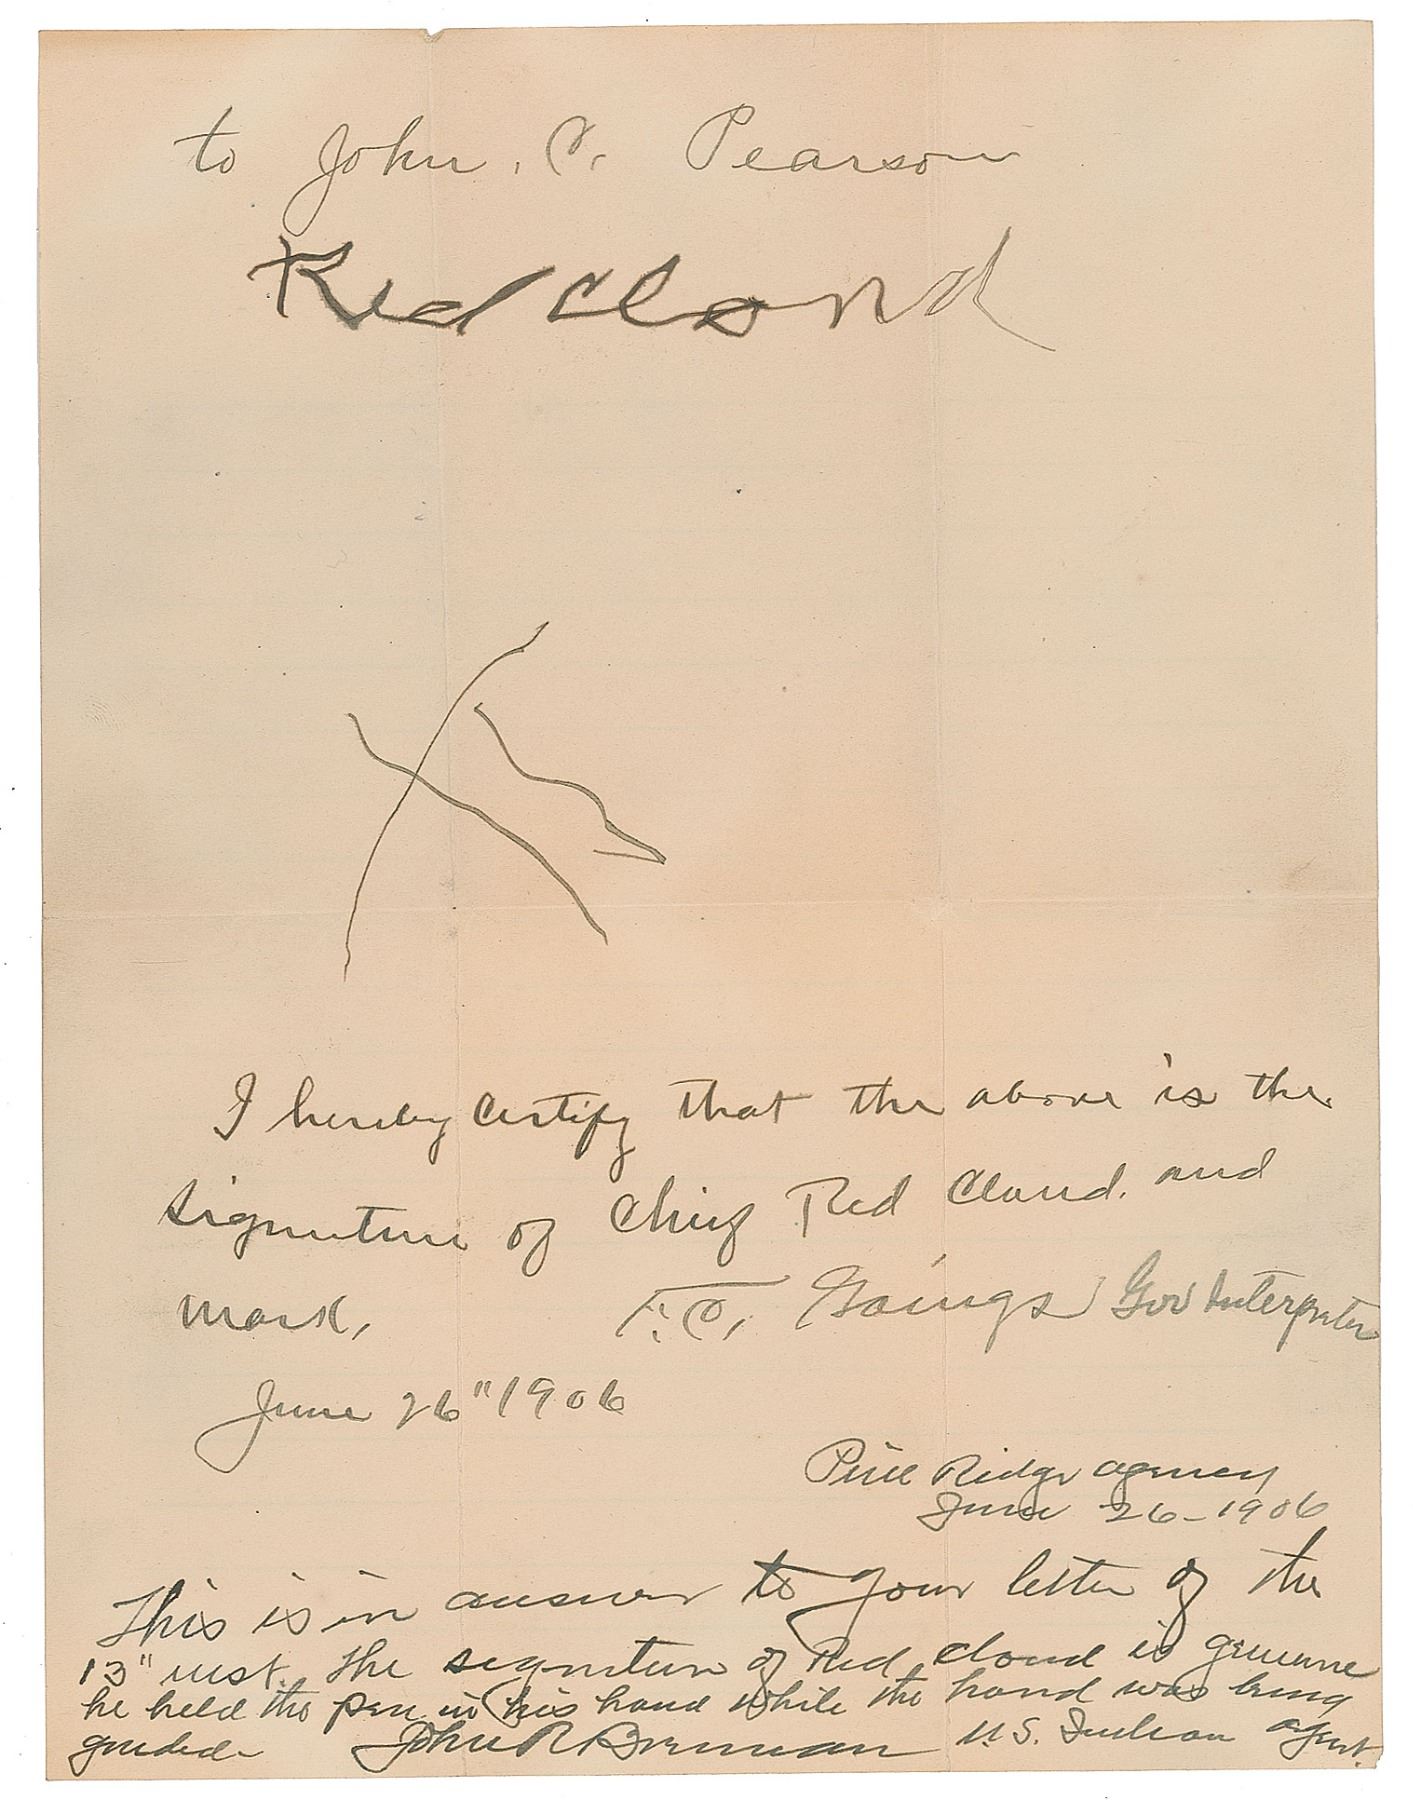 to John. C. Pearson
Red Cloud
X
I hereby certify that the above is the
signature of Chief Red Cloud. and
mark,
F. C. Goings Gov Interpreter
June 26" 1906
Pine Ridge agency
June 26-1906
This is in answer to your letter of the
13" inst. The signature of Red cloud is genuine
he held the pen in his hand while the hand was being
guided- John R Brennan U.S. Indian agent.